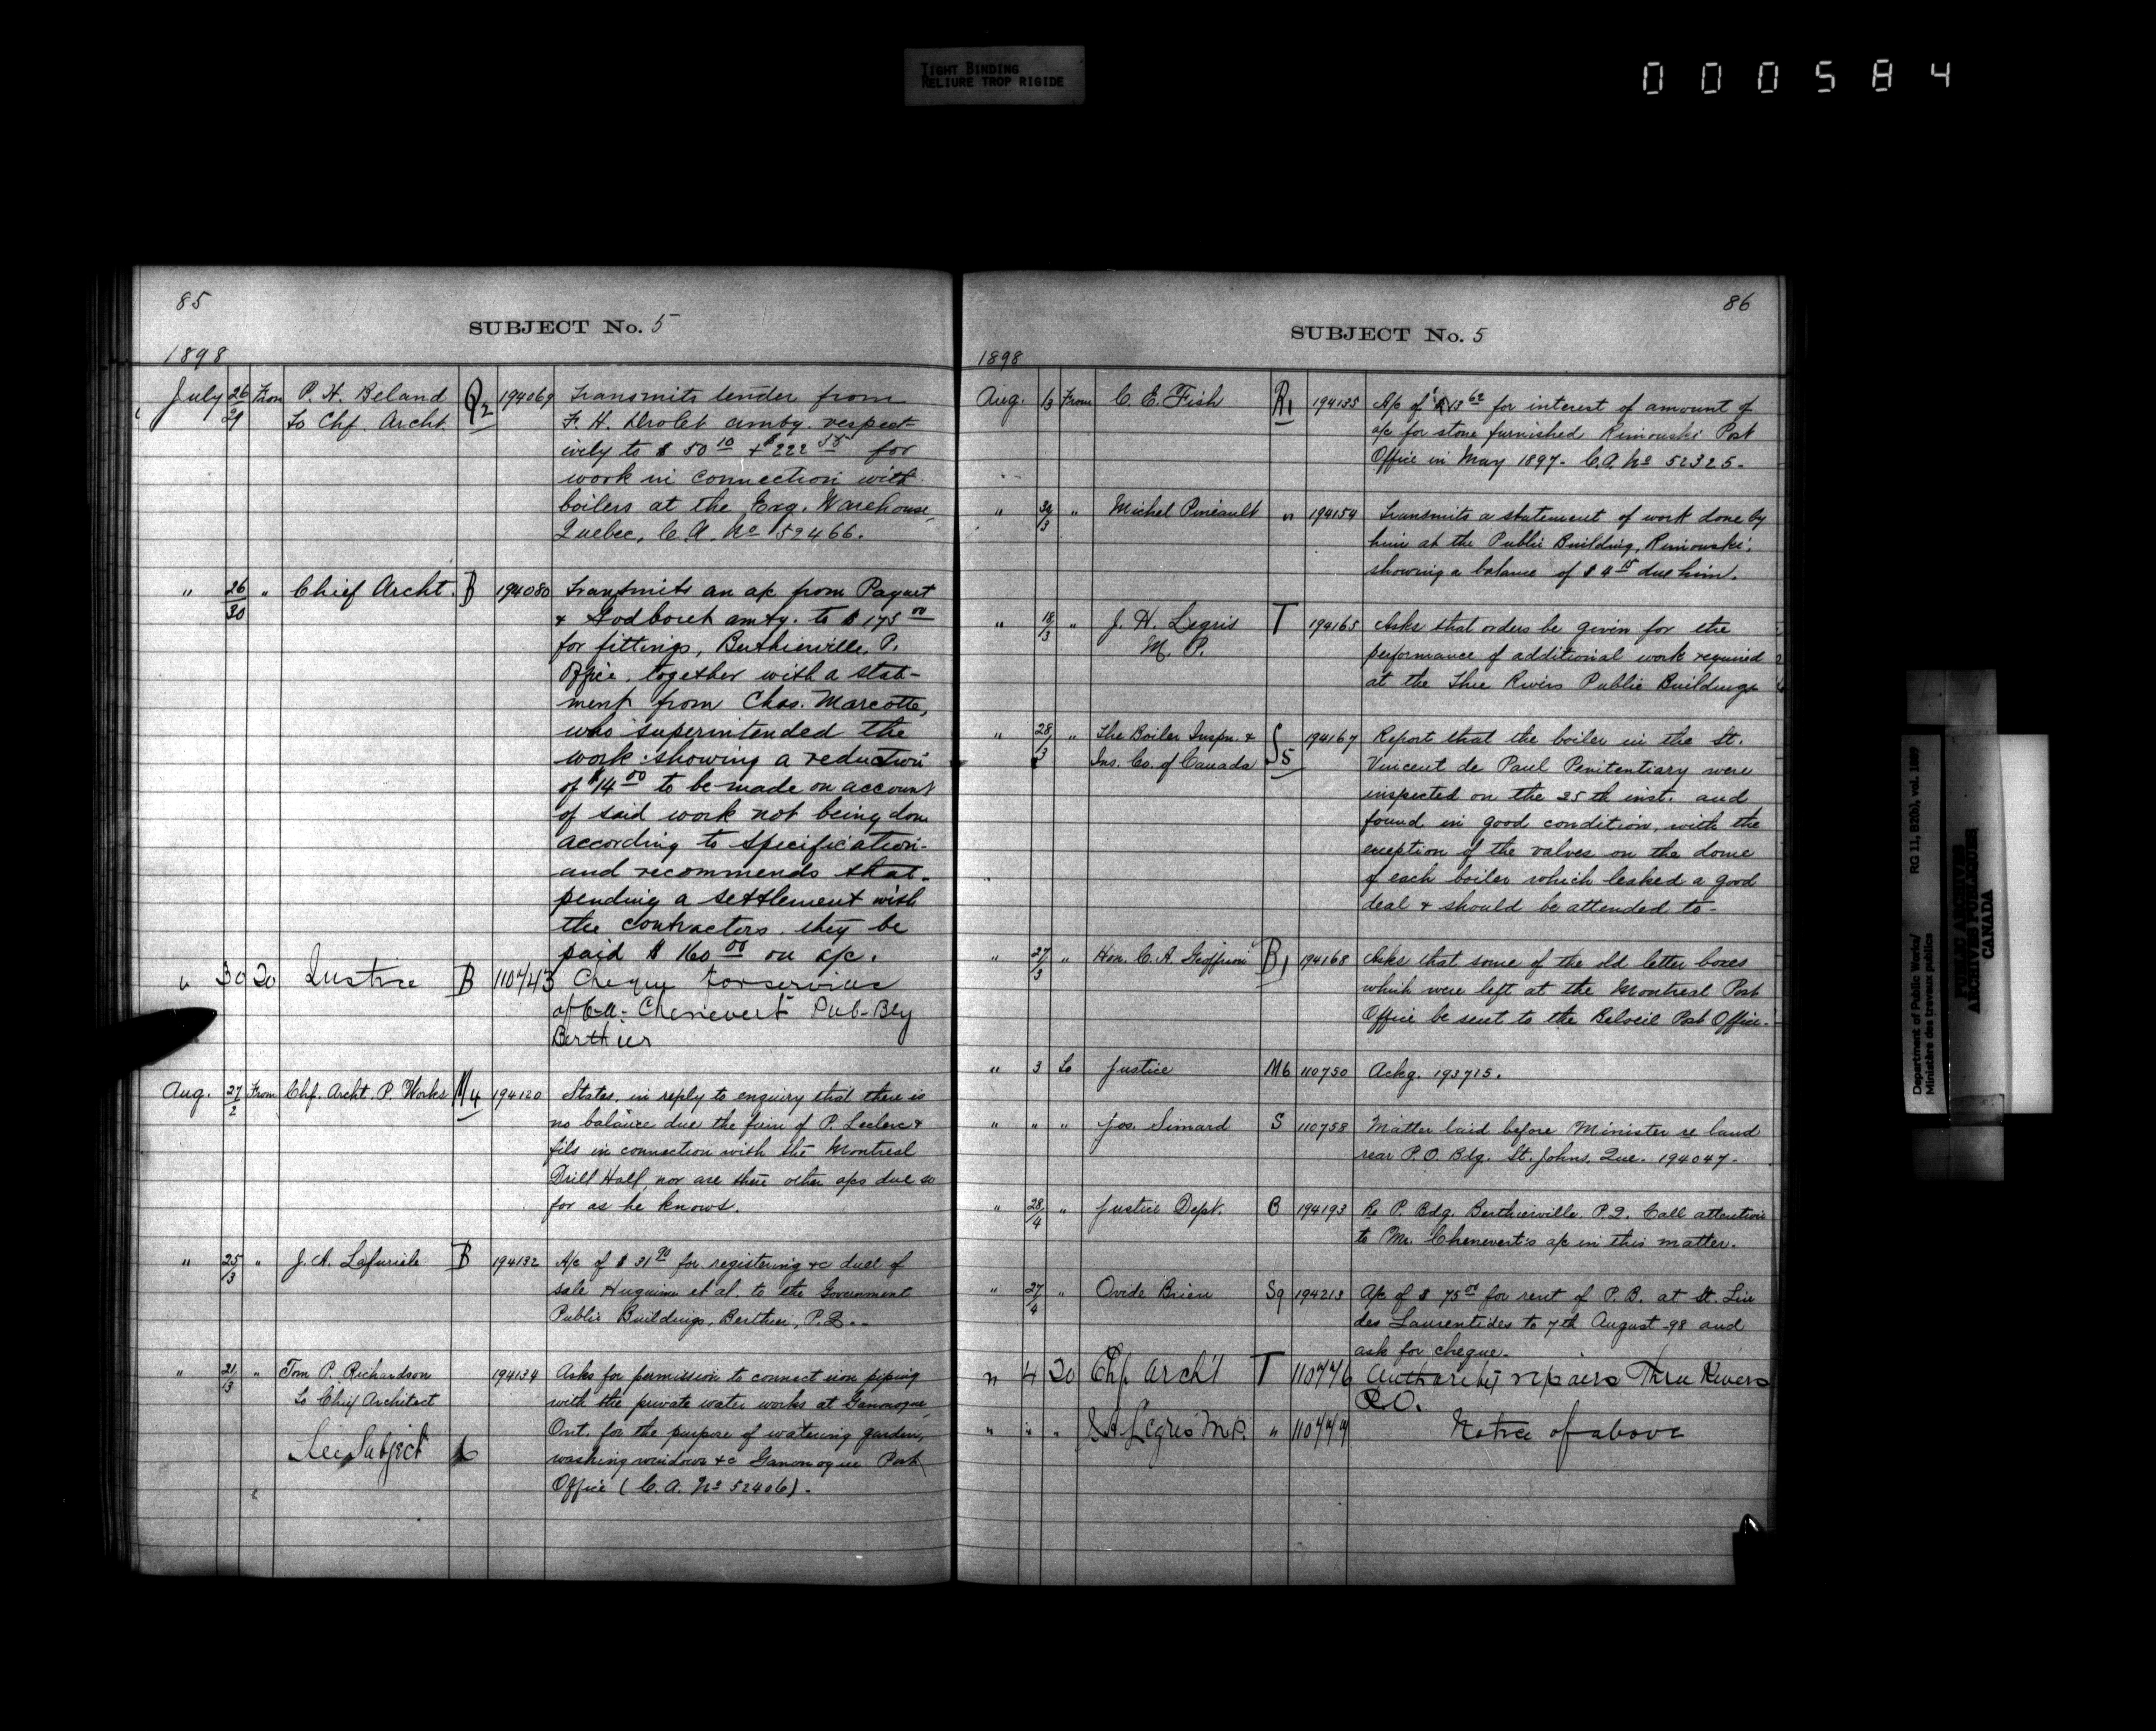 TIGHT BINDING
RELIURE TROP RIGIDE
000584
85
SUBJECT No. 5
1898
July 26/29 From P. H. Beland Q2 194069 Transmits tender from
To Chf. Archt. F. H. Drolet amtg. respect-
ively to $50 10 + $222 55 for
work in connection with
boilers at the Exg. Warehouse,
Quebec, C.A. No 52466.
" 26/30 " Chief Archt. B 194080 Transmits an a/c from Paquet
& Godbout amtg. to $175 00
for fittings, Berthierville, P.
Office, together with a stat-
ment from Chas. Marcotte,
who superintended the
work showing a reduction
of $14 00 to be made on account
of said work not being done
according to specification-
and recommends that-
pending a settlement with
the contractors they be
paid $160 00 on a/c.
" 30 To Justice B 110743 Cheque for services
of C.A. Chenevert Pub-Bdg
Berthier
Aug. 27/2 From Chf. Archt. P. Works M4 194120 States, in reply to enquiry that there is
no balance due the firm of P. Leclerc &
fils in connection with the Montreal
Drill Hall, nor are there other a/cs due so
far as he knows.
" 25/3 " J. A. B 194132 A/c of $31 90 for registering &c deed of
sale et al. to the Government
Public Buildings, Berthier, P.Q.-
" 21/3 " Tom P. Richardson 194134 Asks for permission to connect iron piping
To Chief Architect with the private water works at Gananoque,
Ont. for the purpose of watering garden,
See Subject 6 washing windows &c Gananoque Post
Office (C.A. No 52406).
86
SUBJECT No. 5
1898
Aug. 1/3 From C. E. Fish R1 194135 A/c of $13 62 for interest of amount of
a/c for stone furnished Rimouski Post
Office in May 1897. C.A. No 52325.
" 30/3 " Michel Pineault " 194154 Transmits a statement of work done by
him at the Public Building, Rimouski,
showing a balance of $4 15 due him.
" 18/3 " J. H. Legris T 194165 Asks that orders be given for the
M. P. performance of additional work required
at the Three Rivers Public Buildings
" 28/3 " The Boiler Inspn. & S5 194167 Report that the boiler in the St.
Ins. Co. of Canada Vincent de Paul Penitentiary were
inspected on the 25th inst. and
found in good condition, with the
exception of the valves on the dome
of each boiler which leaked a good
deal & should be attended to-
" 27/3 " Hon. C. A. Geoffrion B1 194168 Asks that some of the old letter boxes
which were left at the Montreal Post
Office be sent to the Beloeil Post Office.
" 3 To Justice M6 110750 Ackg. 193715.
" " " Jos. Simard S 110758 Matter laid before Minister re land
rear P.O. Bdg. St. Johns, Que. 194047.
" 28/4 " Justice Dept. B 194193 Re P. Bdg. Berthierville, P.Q. Call attention
to Mr. Chenevert's a/c in this matter.
" 27/4 " Ovide Brien S9 194213 A/c of $75 00 for rent of P.B. at St. Lin
des Laurentides to 7th August -98 and
ask for cheque.
" 4 To Chf Archt T 110776 Authority repairs Three Rivers
P.O.
" " " J H Legris M.P. " 110777 Notice of above
Department of Public Works/
Ministère des travaux publics
RG 11, B2(b), vol. 1889
PUBLIC ARCHIVES
ARCHIVES PUBLIQUES
CANADA